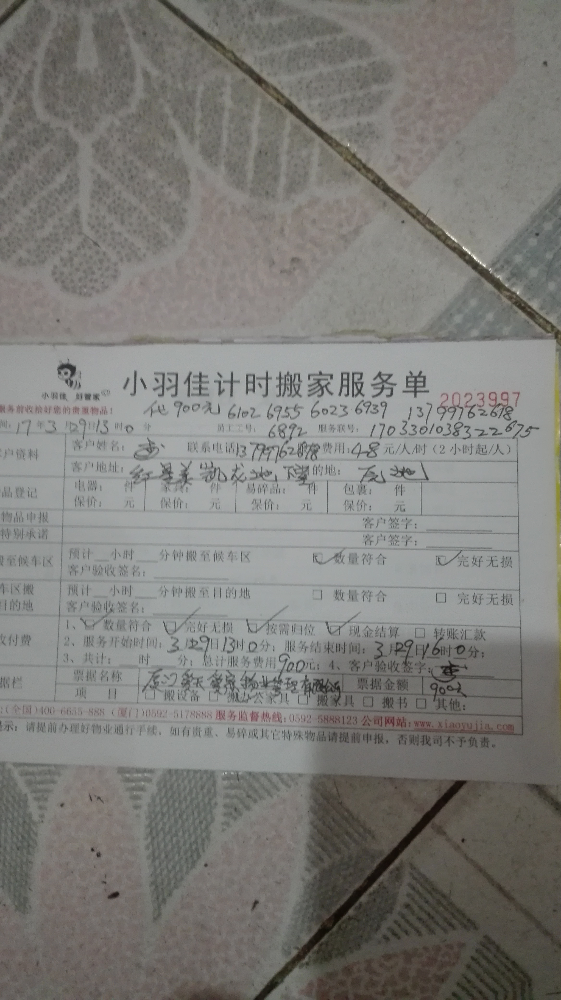 小羽佳 好管家
小羽佳计时搬家服务单
2023997
服务前收拾好您的贵重物品!
900元 6102 6955 6023 6939 13799762678
间: 17年3月29日13时0分 员工工号: 6892 服务联号: 1703301038322675
客户资料 客户姓名: 联系电话 费用: 48元/人/时(2小时起/人)
客户地址: 的地:
品登记 电器: 件 家具: 件 易碎品: 件 包裹: 件
保价: 元 保价: 元 保价: 元 保价: 元
物品申报 客户签字:
特别承诺 客户签字:
搬至候车区 预计 小时 分钟搬至候车区 数量符合 完好无损
客户验收签名:
车区搬 预计 小时 分钟搬至目的地 数量符合 完好无损
目的地 客户验收签名:
1、 数量符合 完好无损 按需归位 现金结算 转账汇款
收付费 2、服务开始时间: 3月29日13时0分; 服务结束时间: 3月29日16时0分;
3、共计: 时 分; 总计服务费用900元; 4、客户验收签字:
据栏 票据名称 票据金额 900元
项 目 搬设备 搬办公家具 搬家具 搬书 其他:
:(全国)400-6655-888 (厦门)0592-5178888 服务监督热线:0592-5888123 公司网站:www.xiaoyujia.com
提示: 请提前办理好物业通行手续, 如有贵重、易碎或其它特殊物品请提前申报, 否则我司不予负责。